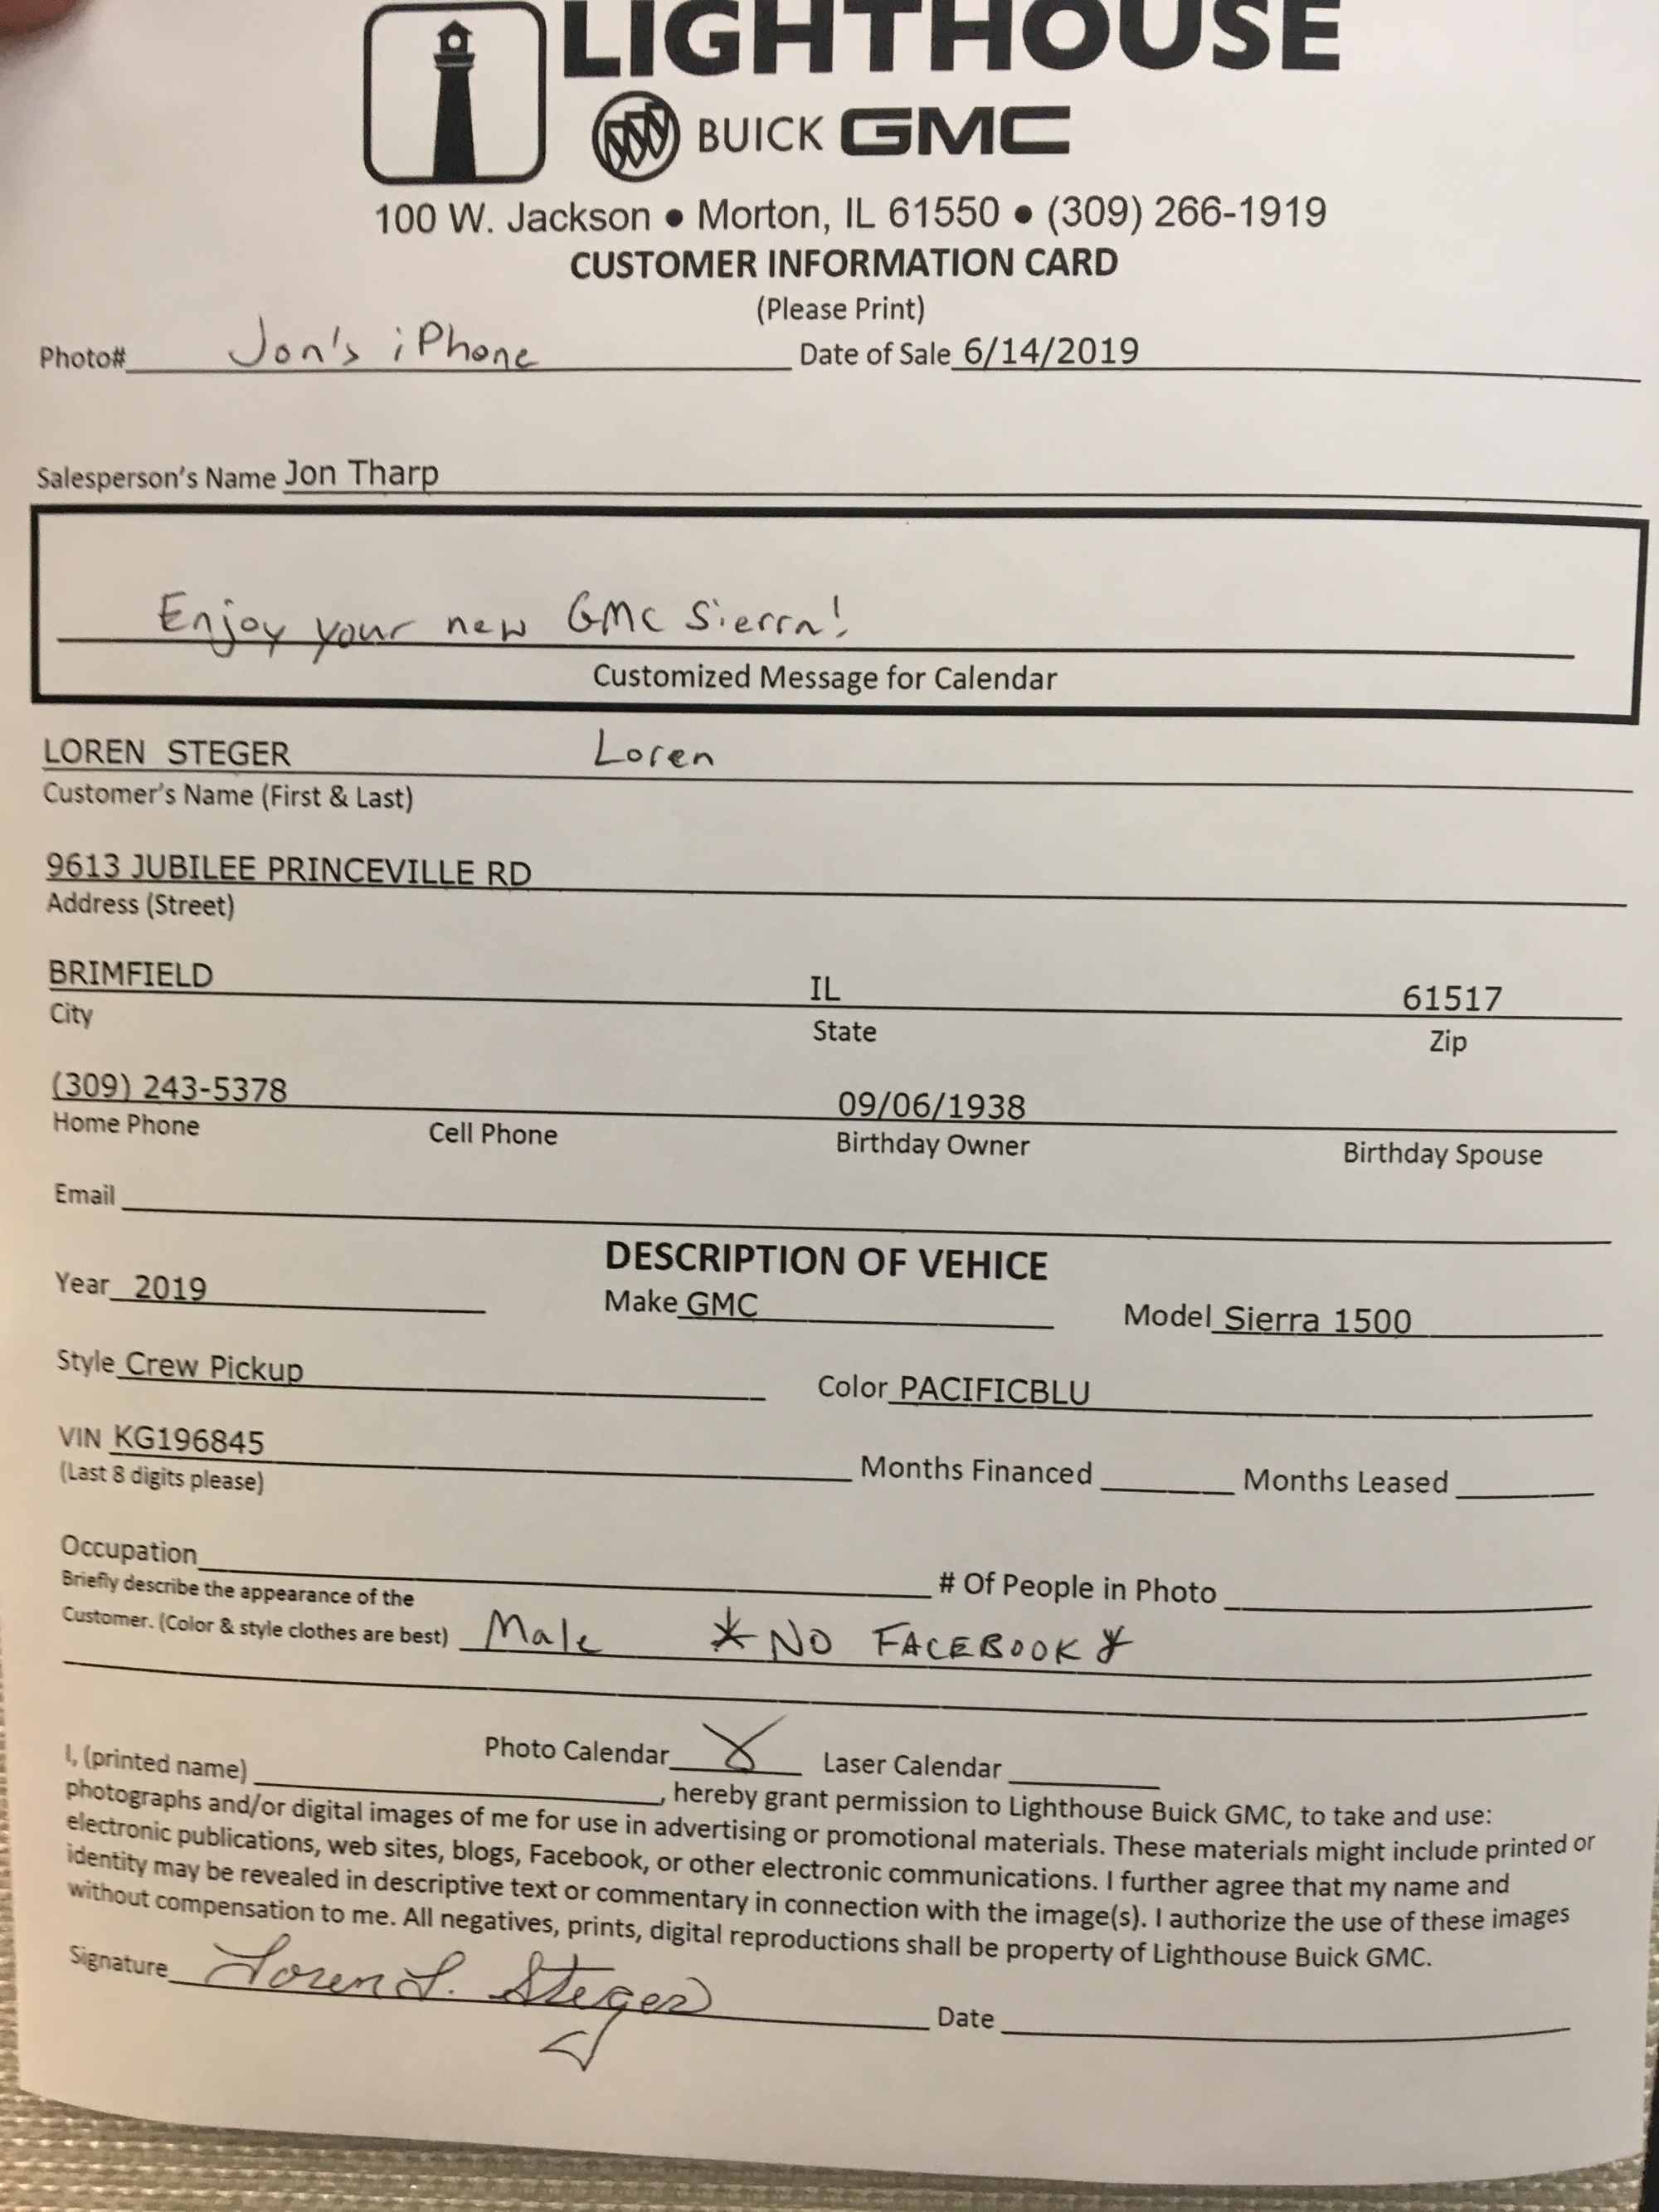 LIGHTHOUSE
BUICK GMC
100 W. Jackson ● Morton, IL 61550 ● (309) 266-1919
CUSTOMER INFORMATION CARD
(Please Print)
Photo# Jon's iPhone Date of Sale 6/14/2019
Salesperson's Name Jon Tharp
Enjoy your new GMC Sierra!
Customized Message for Calendar
LOREN STEGER Loren
Customer's Name (First & Last)
9613 JUBILEE PRINCEVILLE RD
Address (Street)
BRIMFIELD IL 61517
City State Zip
(309) 243-5378 09/06/1938
Home Phone Cell Phone Birthday Owner Birthday Spouse
Email
DESCRIPTION OF VEHICE
Year 2019 Make GMC Model Sierra 1500
Style Crew Pickup Color PACIFICBLU
VIN KG196845 Months Financed Months Leased
(Last 8 digits please)
Occupation # Of People in Photo
Briefly describe the appearance of the
Customer. (Color & style clothes are best) Male * NO FACEBOOK *
Photo Calendar X Laser Calendar
I, (printed name) , hereby grant permission to Lighthouse Buick GMC, to take and use:
photographs and/or digital images of me for use in advertising or promotional materials. These materials might include printed or
electronic publications, web sites, blogs, Facebook, or other electronic communications. I further agree that my name and
identity may be revealed in descriptive text or commentary in connection with the image(s). I authorize the use of these images
without compensation to me. All negatives, prints, digital reproductions shall be property of Lighthouse Buick GMC.
Signature Loren L. Steger Date